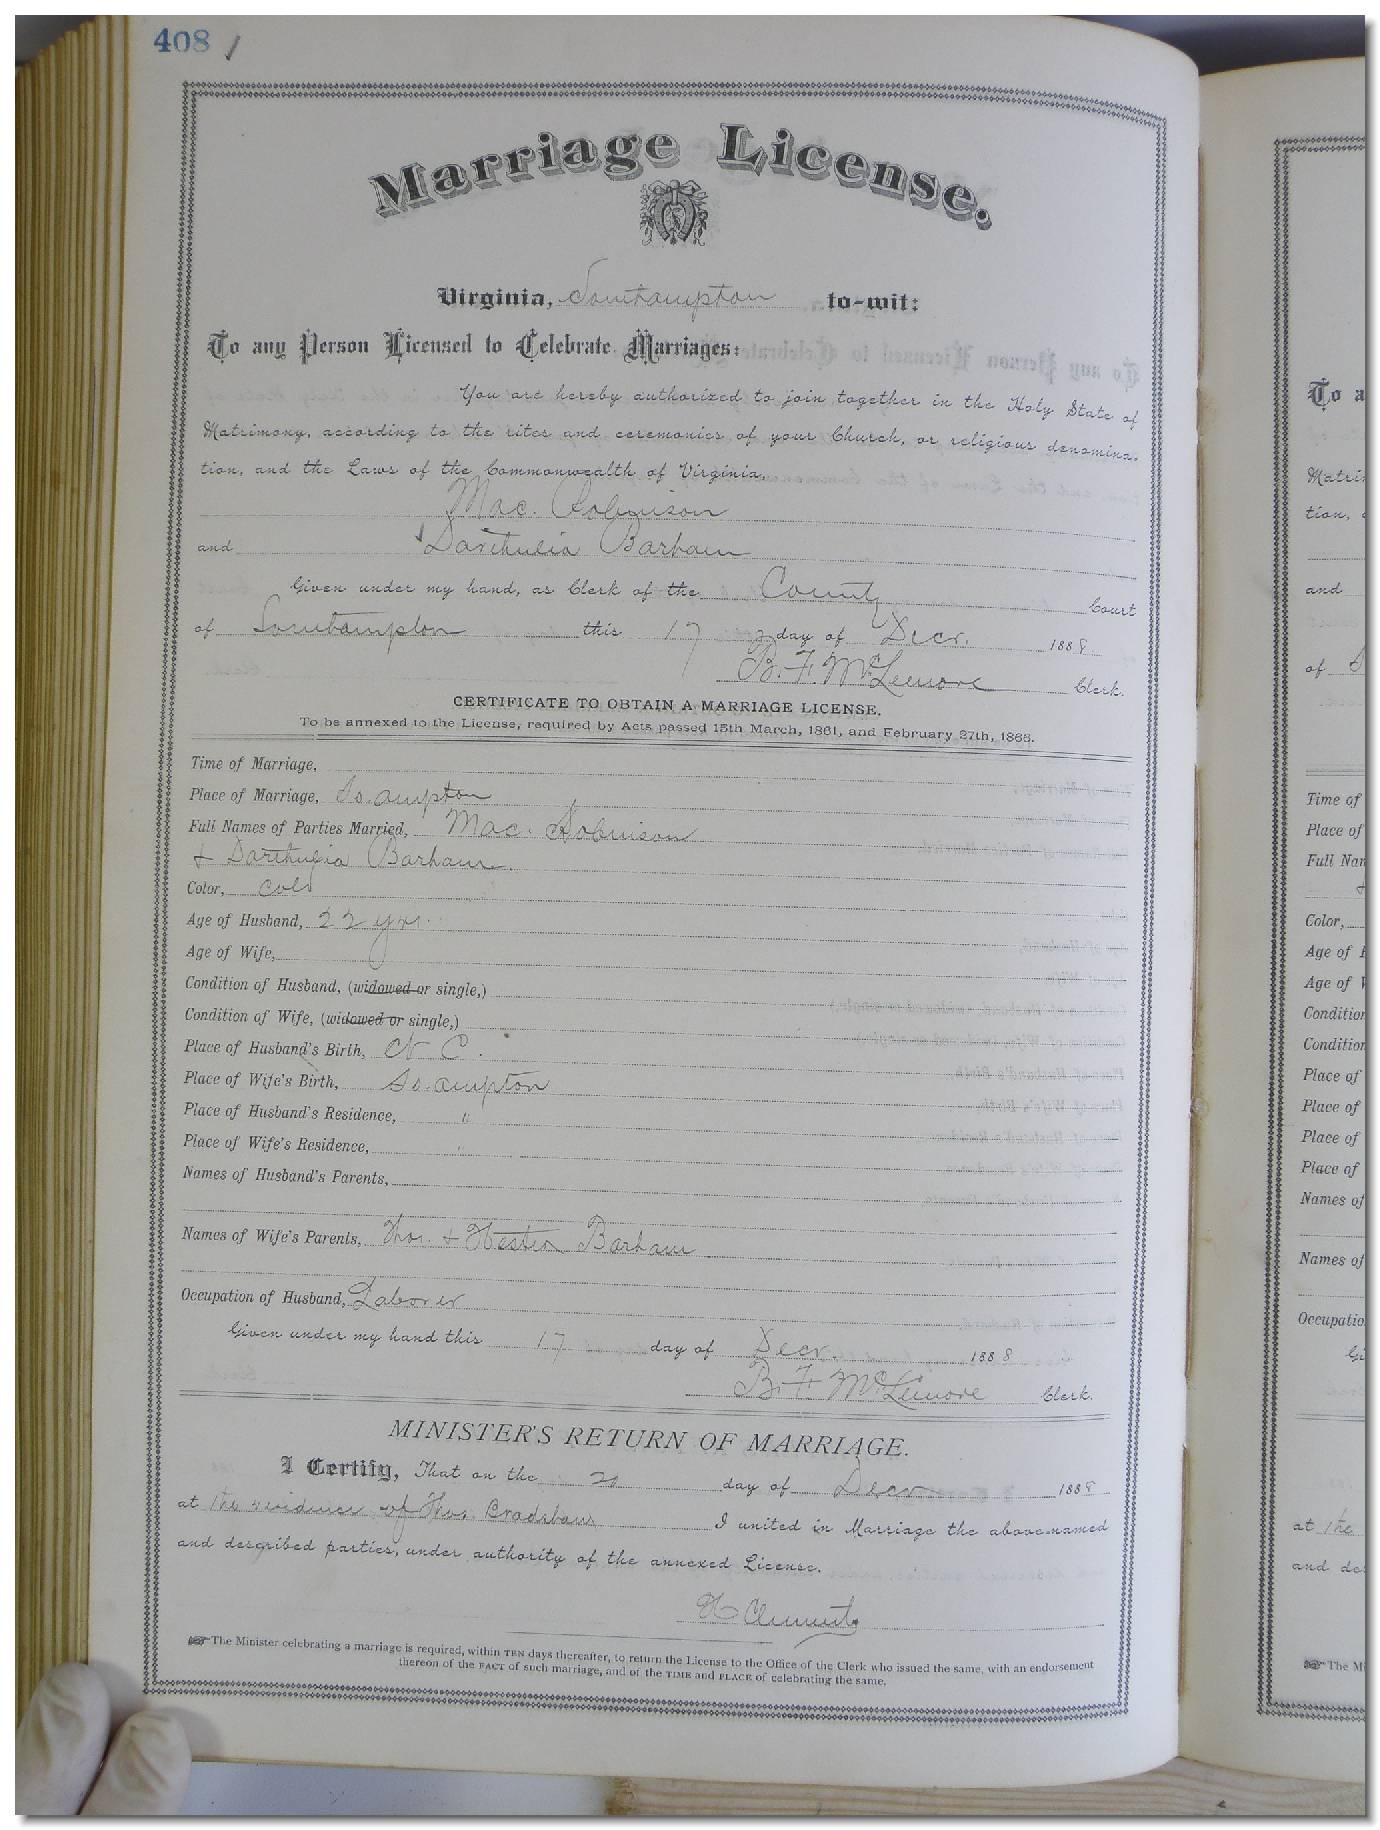 408
Marriage License.
Virginia, Southampton to-wit:
To any Person Licensed to Celebrate Marriages:
You are hereby authorized to join together in the Holy State of
Matrimony, according to the rites and ceremonies of your Church, or religious denomina-
tion, and the Laws of the Commonwealth of Virginia.
Mac. Robinson
and Darthulia Barham
Given under my hand, as Clerk of the County Court
of Southampton this 17 day of Decr. 1888
B. F. McLemore Clerk.
CERTIFICATE TO OBTAIN A MARRIAGE LICENSE.
To be annexed to the License, required by Acts passed 15th March, 1861, and February 27th, 1866.
Time of Marriage,
Place of Marriage, So.ampton
Full Names of Parties Married, Mac. Robinson
& Darthulia Barham.
Color, Cold
Age of Husband, 22 yrs.
Age of Wife,
Condition of Husband, (widowed or single,)
Condition of Wife, (widowed or single,)
Place of Husband's Birth, N C.
Place of Wife's Birth, So.ampton
Place of Husband's Residence, "
Place of Wife's Residence, "
Names of Husband's Parents,
Names of Wife's Parents, Thos. & Hester Barham
Occupation of Husband, Laborer
Given under my hand this 17 day of Decr. 1888
B. F. McLemore Clerk.
MINISTER'S RETURN OF MARRIAGE.
I Certify, That on the day of Decr 1888
at the residence of Thos. I united in Marriage the above-named
and described parties, under authority of the annexed License.
The Minister celebrating a marriage is required, within TEN days thereafter, to return the License to the Office of the Clerk who issued the same, with an endorsement
thereon of the FACT of such marriage, and of the TIME and PLACE of celebrating the same.
To a
Matri
tion,
and
of
Time of
Place of
Full Nam
Color,
Age of
Age of
Condition
Condition
Place of
Place of
Place of
Place of
Names of
Names of
Occupatio
Gi
at the
and de
The Mi